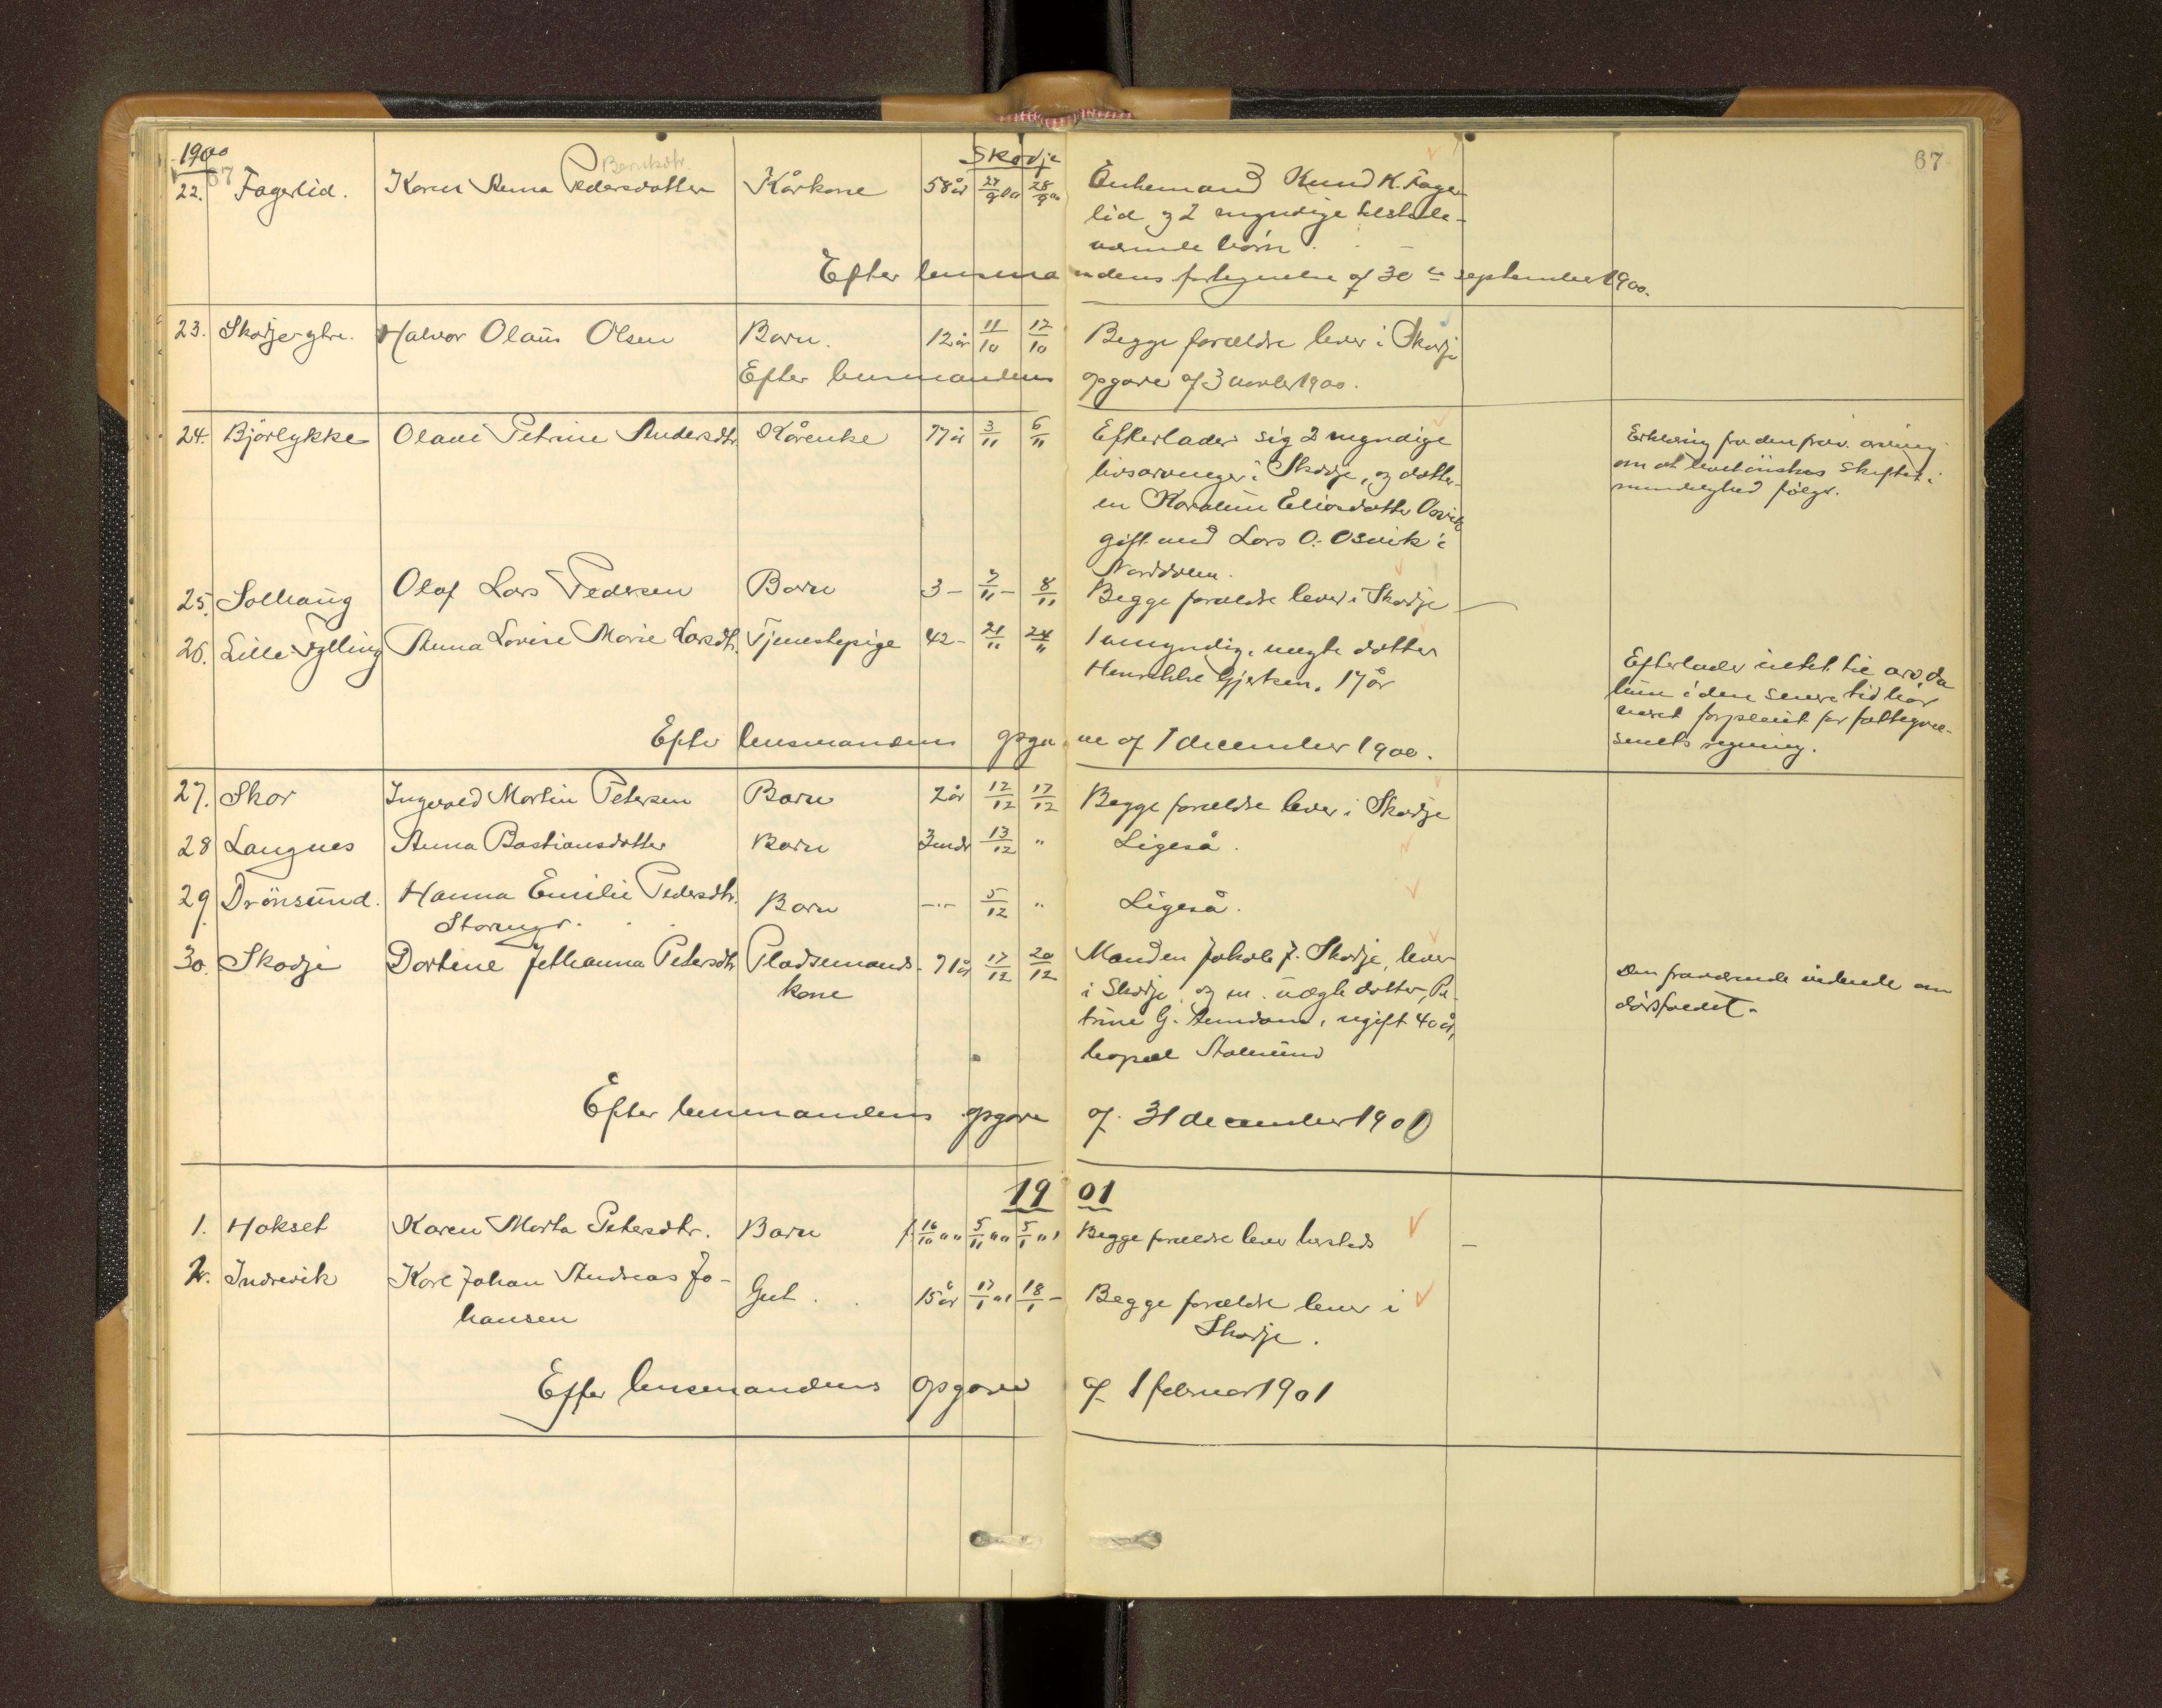 1900
Skodje
67
67
Berntsdtr.
22. Fagerlid. Karen Anna Pedersdatter Kårkone 58 år 24/9 00 28/9 00 Enkemand Knud K. Fager-
lid og 2 myndige tilstede-
værende børn.
Efter lensmandens fortegnelse af 30te september 1900.
23. Skodje ytre. Halvor Olaus Olsen Barn. 12 år 11/10 17/10 Begge forældre lever i Skodje
Efter lensmandens opgave af 3 novbr 1900.
24. Bjørlykke Olave Petrine Andersdtr. Kårenke 77 år 3/11 6/11 Efterlader sig 2 myndige
livsarvinger i Skodje, og datter-
en Karoline Eliasdatter Osvik
gift med Lars O. Osvik i
Norddalen.
Erklæring fra den frav. arving
om at skiftet i
mindelighed følger.
25. Solhaug Olaf Lars Pedersen Barn 3 – 7/11 – 8/11 Begge forældre lever i Skodje –
26. Lille Fylling Anna Lovise Marie Larsdtr. Tjenestepige 42 – 21/11 24/11 1 umyndig, uægte datter
Henrikke Gjertsen, 17 år
Efterlader intet til arv, da
hun i den senere tid har
været forpleiet for fattigvæ-
senets regning.
Efter lensmandens opgave af 1 december 1900.
27. Skor Ingvald Martin Petersen Barn 2 år 12/12 17/12 Begge forældre lever i Skodje
28 Langnes Anna Bastiansdatter Barn 3 mdr 13/12 " Ligeså.
29. Drønsund. Hanna Emilie Pedersdtr. Barn –"– 5/12 " Ligeså.
Stormyr.
30. Skodje Dortine Jethanna Petersdtr Pladsemands- 71 år 17/12 20/12 Manden Jakob J. Skodje, lever
kone i Skodje, og en uægte datter, Pe-
trine G. Amdam, ugift 40 år,
bopæl Ålesund
Den fraværende vidende om
dødsfaldet.
Efter lensmandens opgave af 31 december 1900
1901
1. Hokset Karen Marta Petersdtr. Barn f. 16/10 00 5/11 00 5/1 01 Begge forældre lever hersteds –
2. Indrevik Karl Johan Andreas Jo-
hansen Gut. 15 år 17/1 01 18/1 – Begge forældre lever i
Skodje.
Efter lensmandens opgave af 1 februar 1901